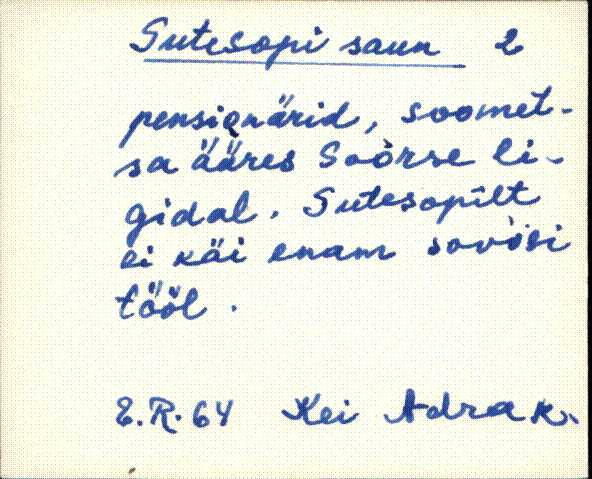 Sutesopi saun 2
pensionärid, soomet-
sa ääres Soòrse li-
gidal. Sutesopilt
ei käi enam sovòsi
tööl.
E.R. 64 Kei Adra k.